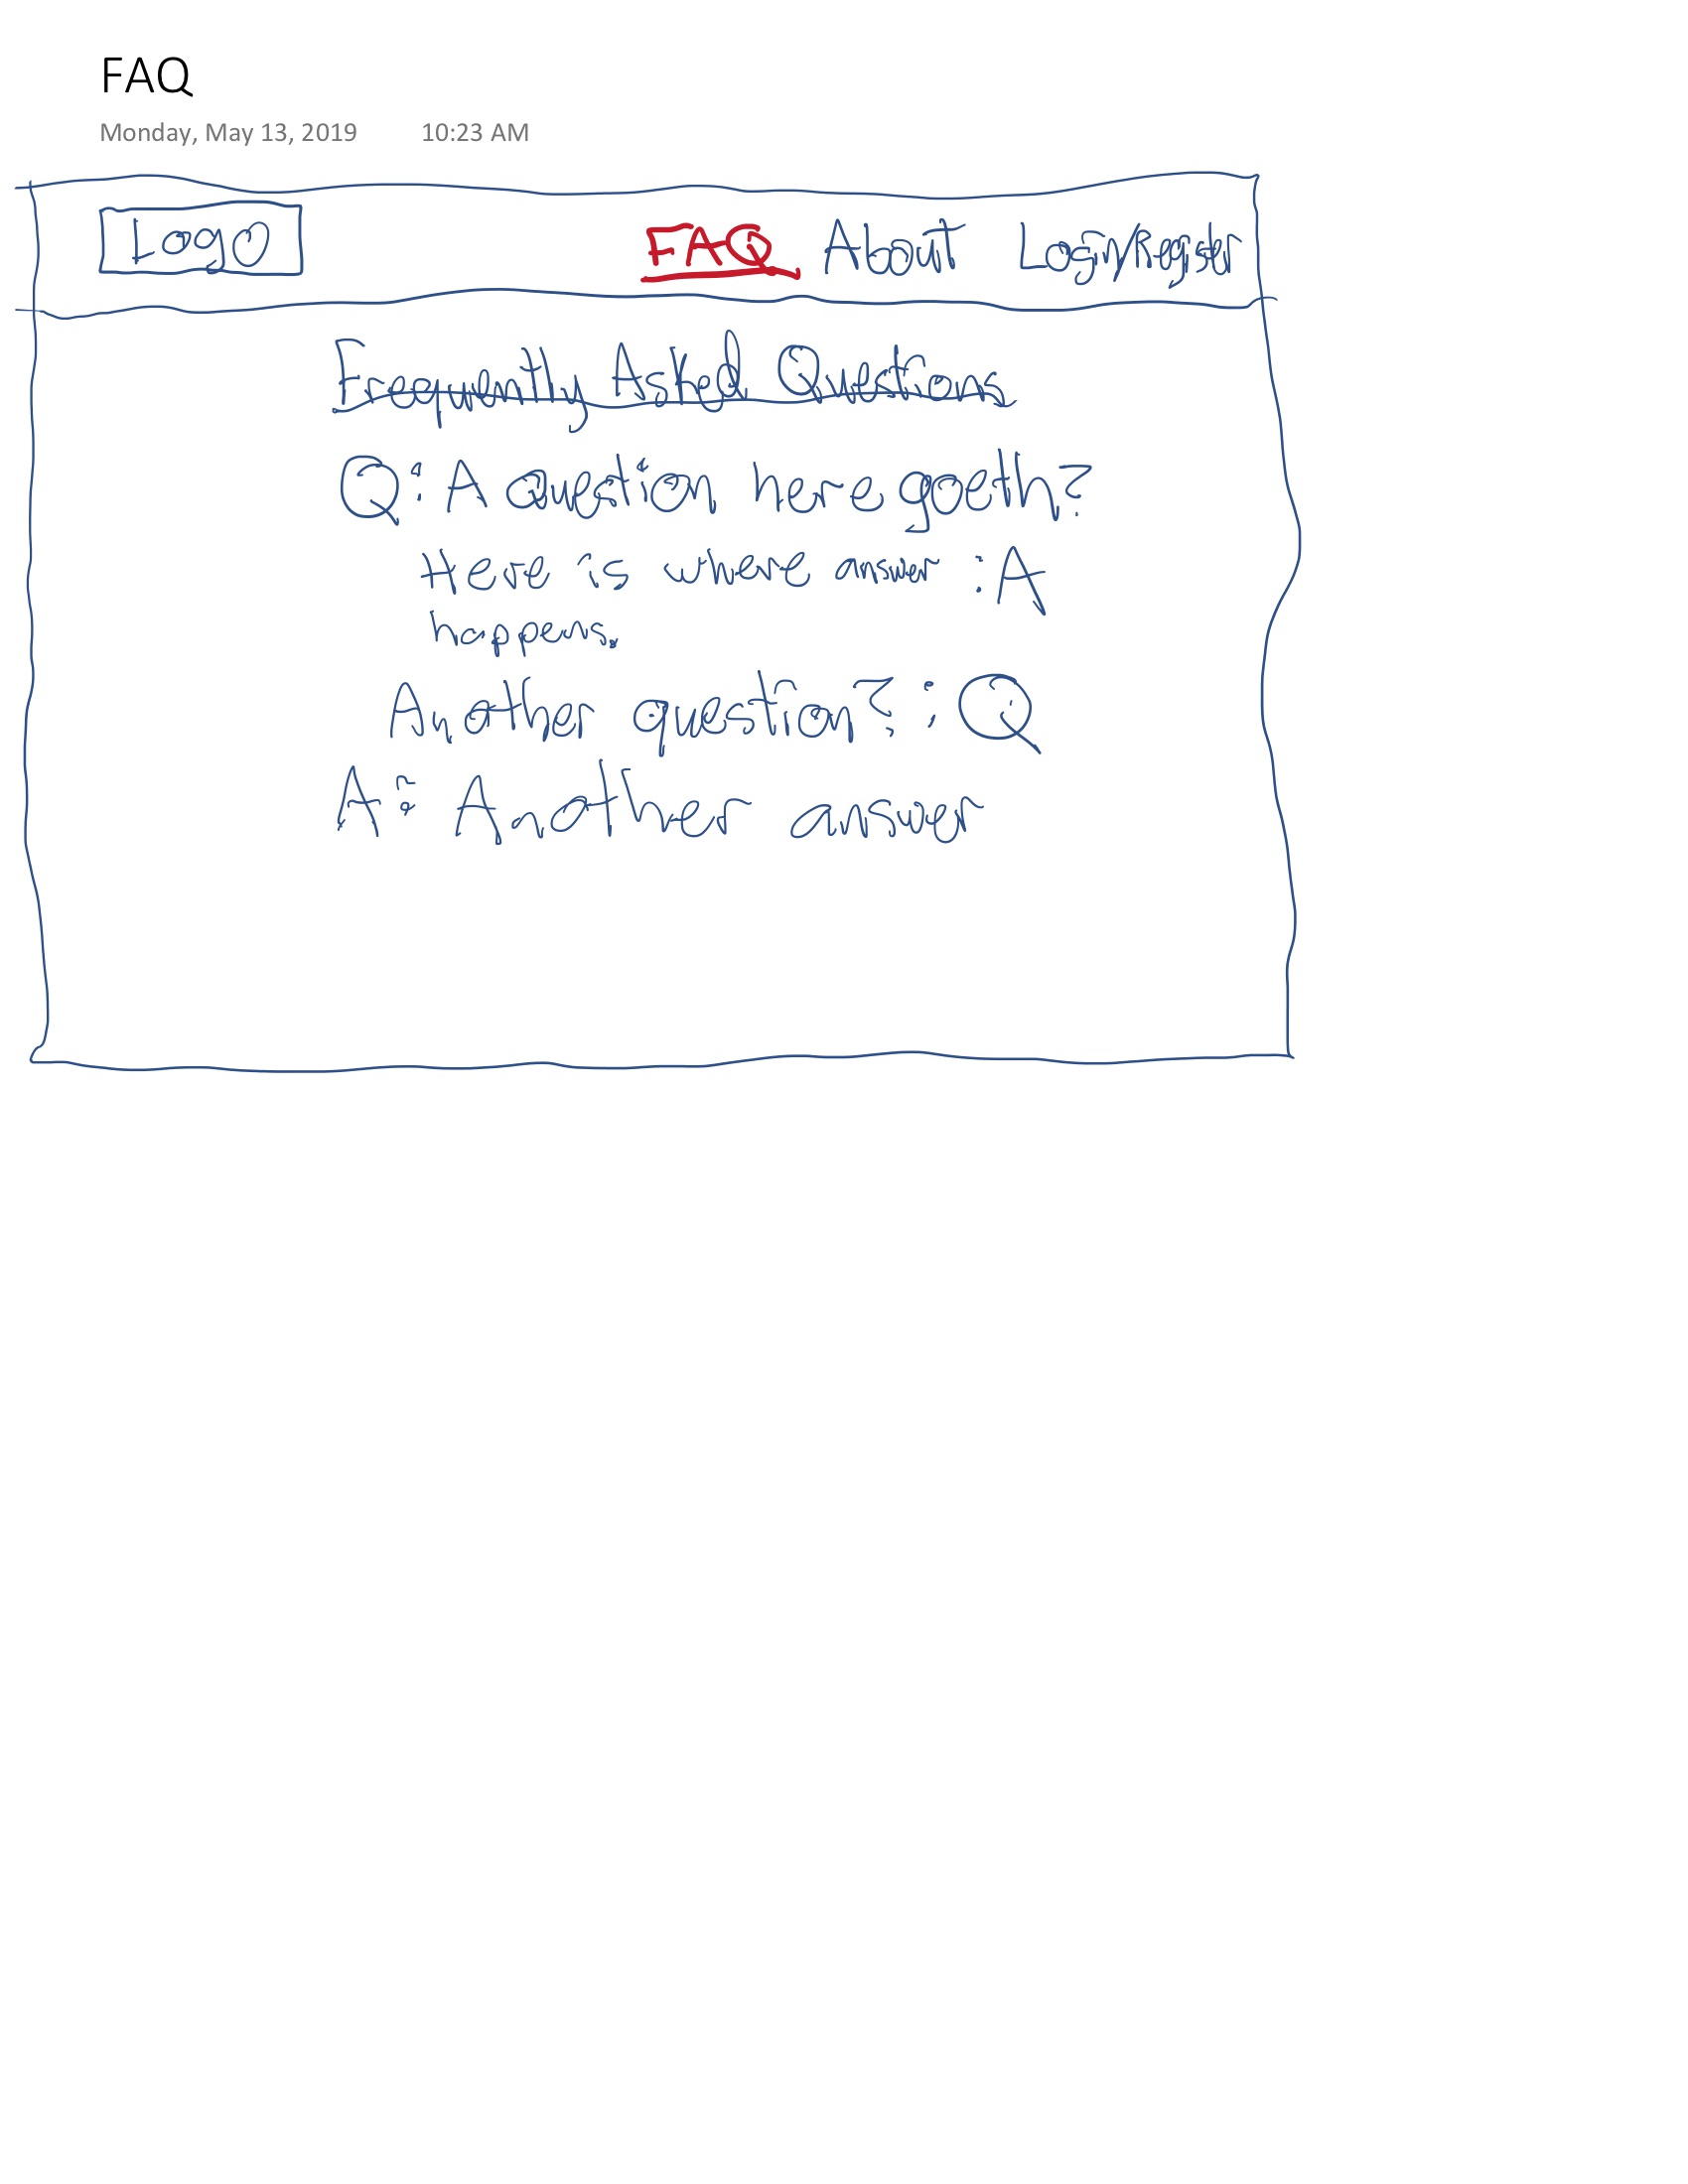 FAQ
Monday, May 13, 2019 10:23 AM
Logo FAQ About Login/Register
Frequently Asked Questions
Q: A question here goeth?
Here is where answer :A
happens.
Another question? : Q
A: Another answer